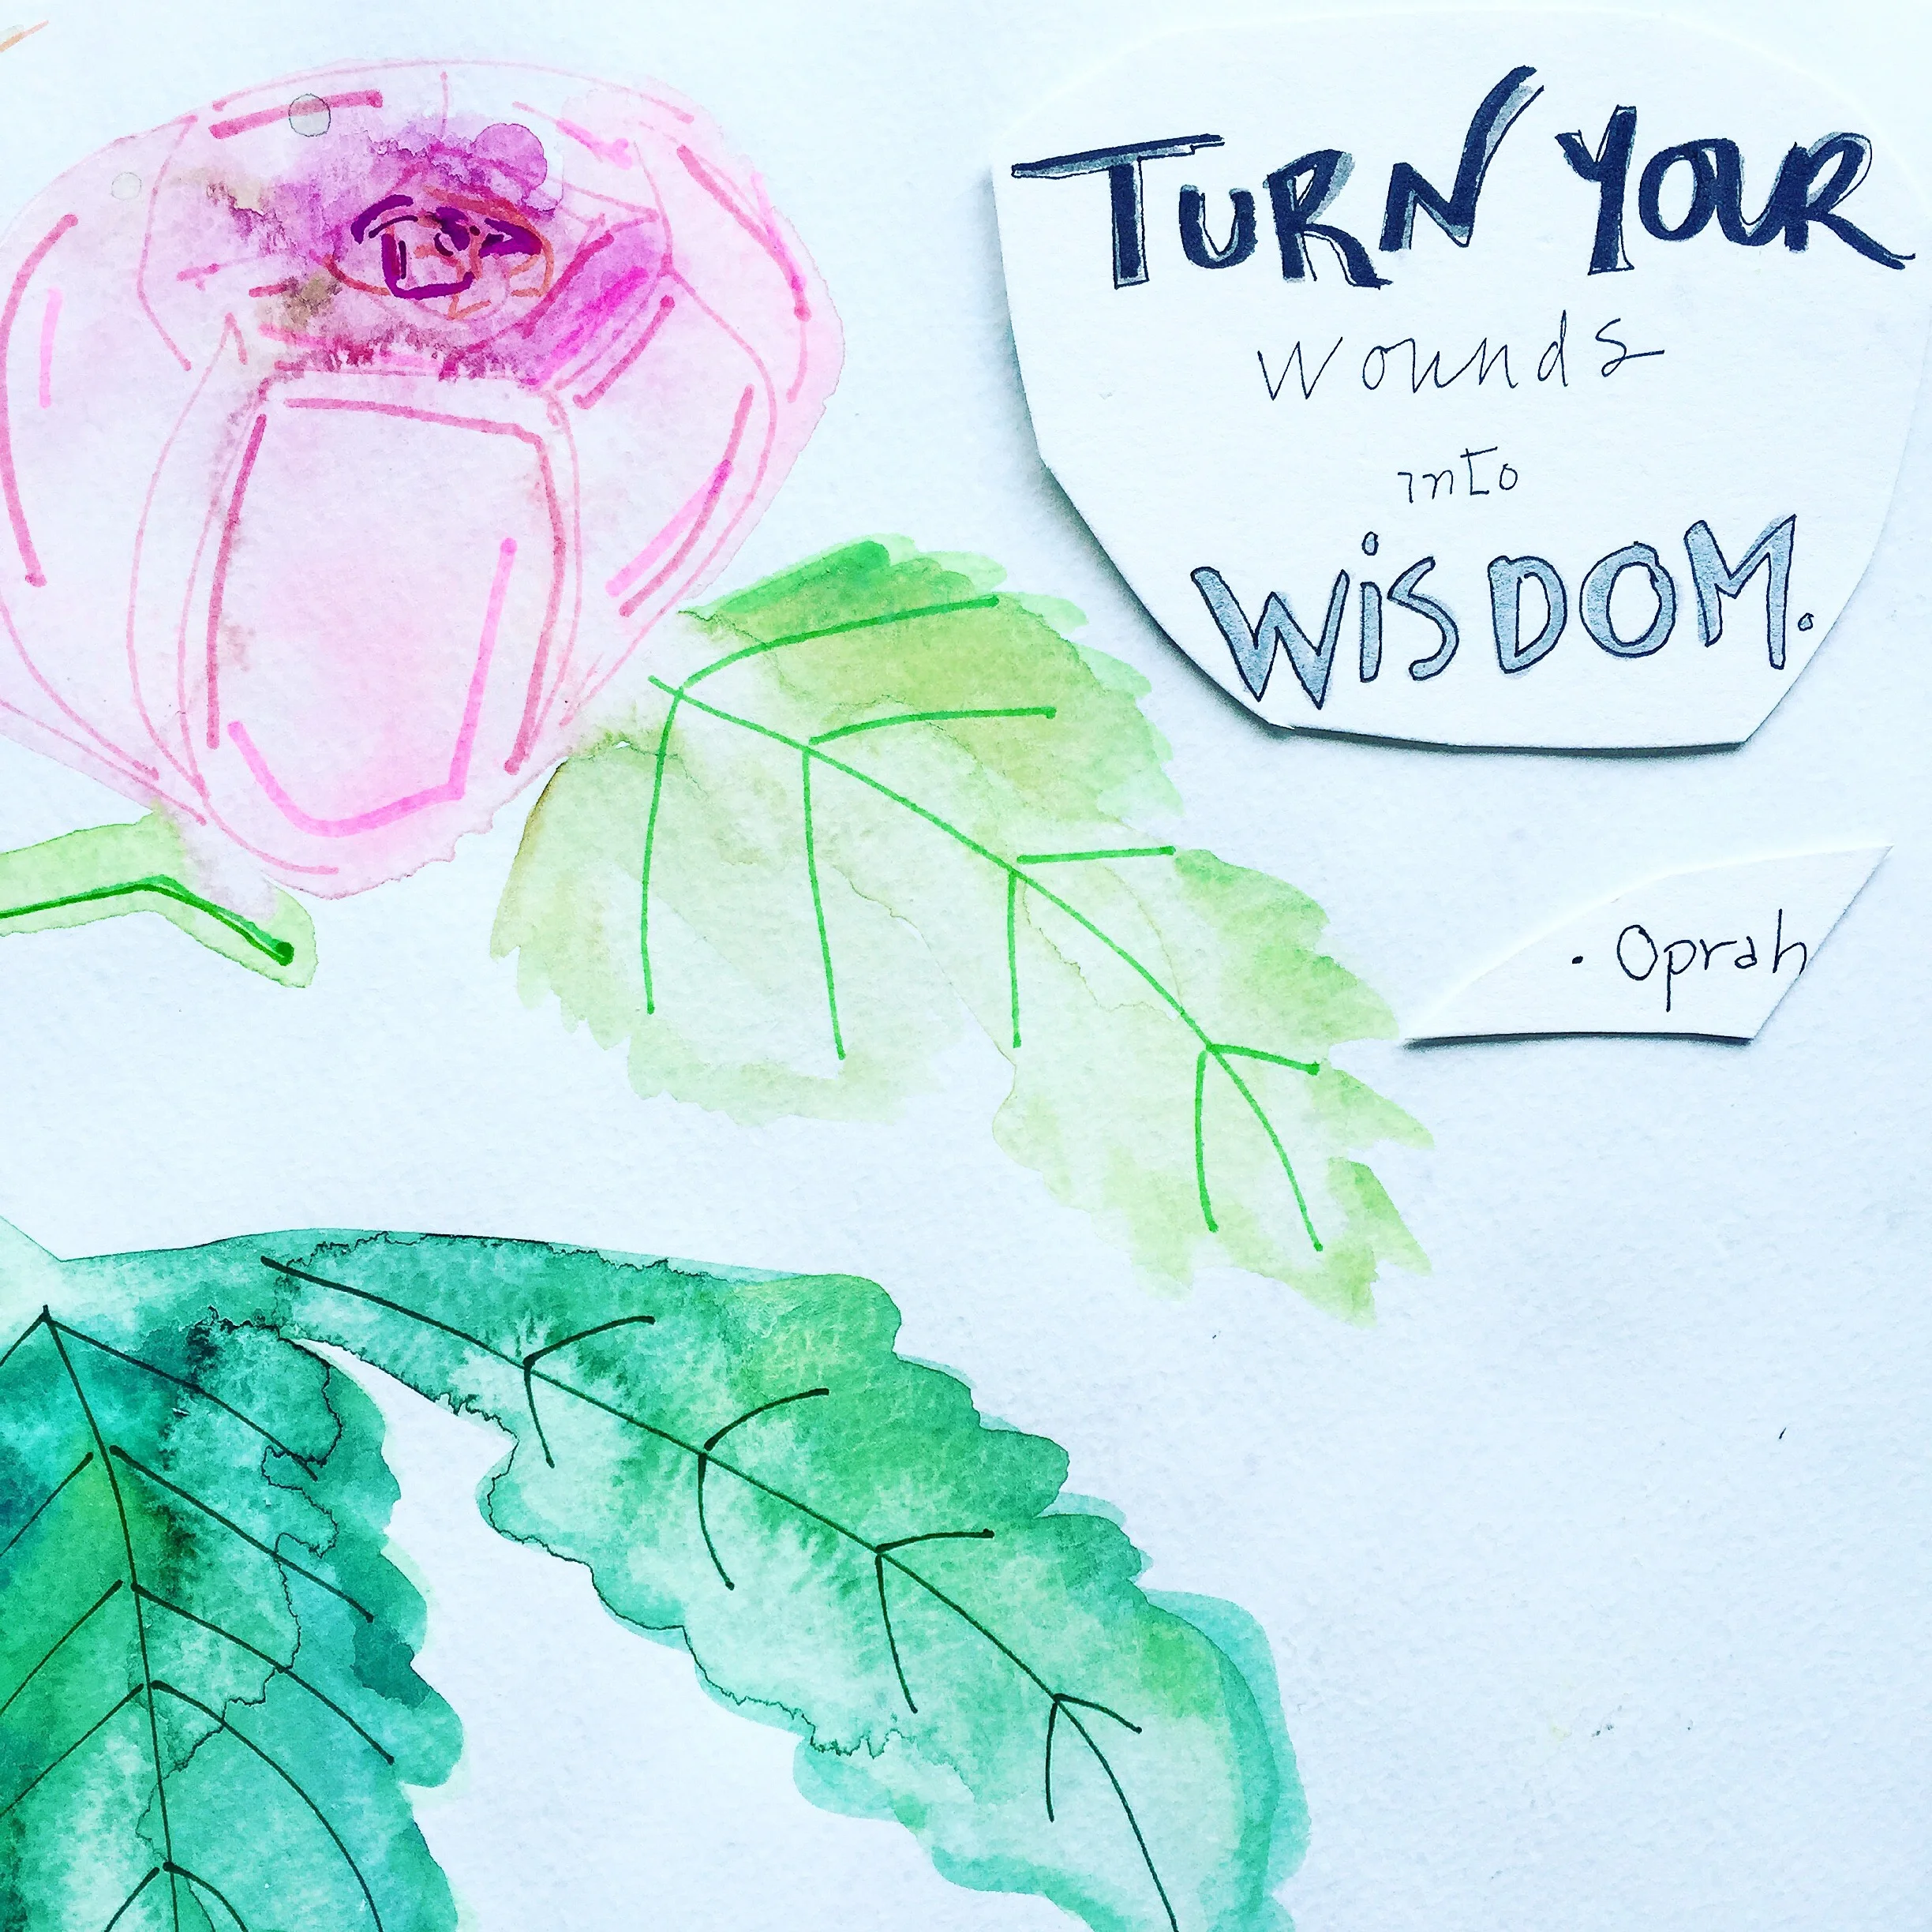 TURN YOUR
wounds
into
WiSDOM.
. Oprah